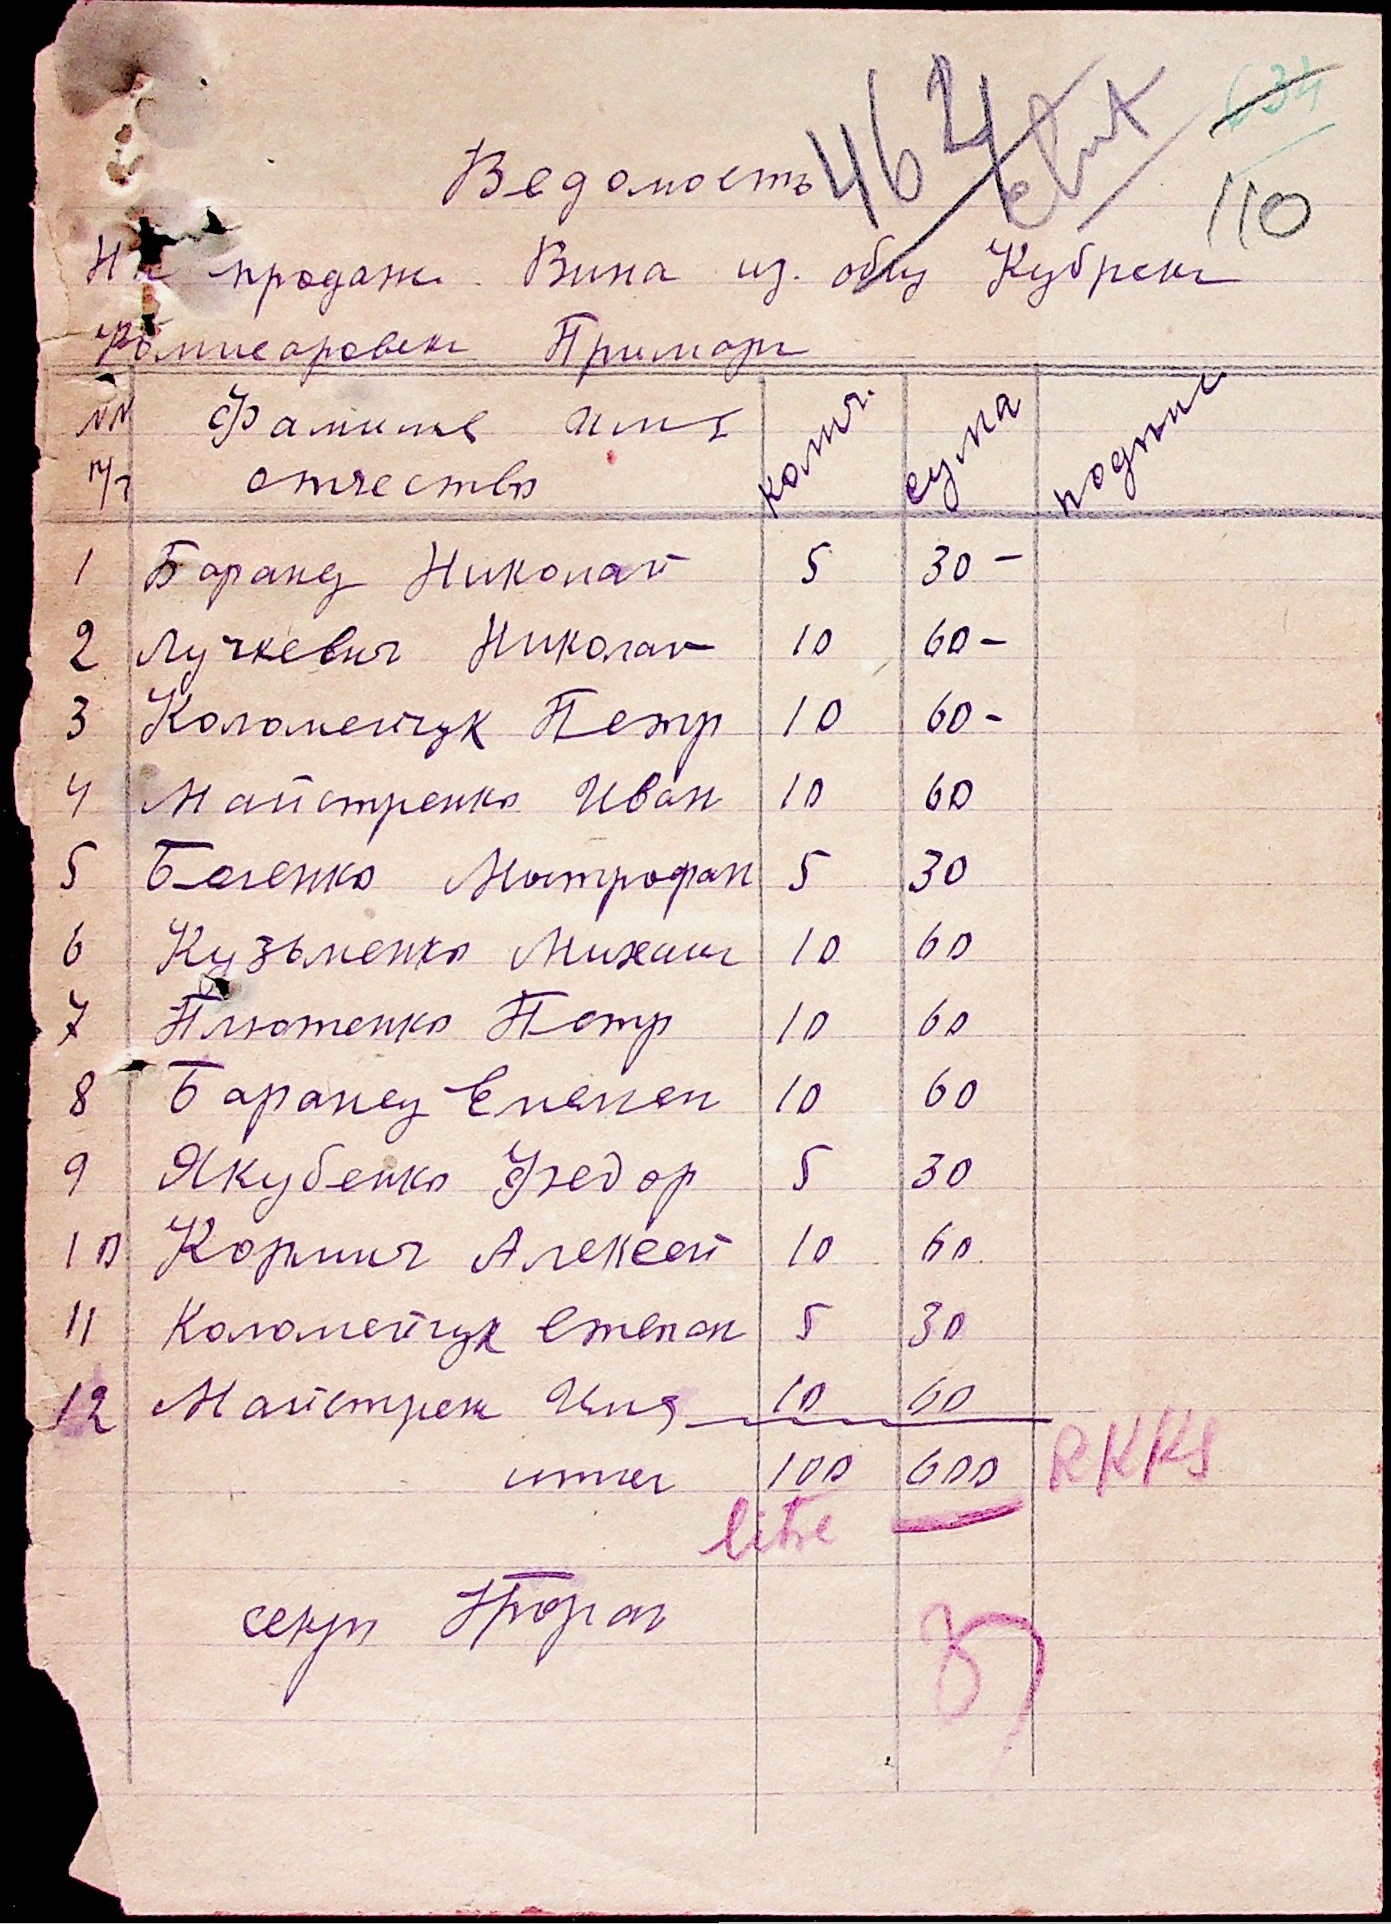 634
464
110
Ведомость
На продаж. Вина из. общ Кубрск
Комисаровск Примар
NN Фамилия Имя колич. сума подписи
п/п отчество
1 Баранец Николай 5 30 –
2 Лучкевич Николай 10 60 –
3 Коломейчук Петр 10 60 –
4 Майстренко Иван 10 60
5 Баленко Митрофан 5 30
6 Кузьменко Михаил 10 60
7 Плютенко Петр 10 60
8 Баранец Емельян 10 60
9 Якубенко Федор 5 30
10 Кормич Алексей 10 60
11 Коломейчук Степан 5 30
12 Майстренк Илия 10 60
итог 100 600 RKKS
litre
секр